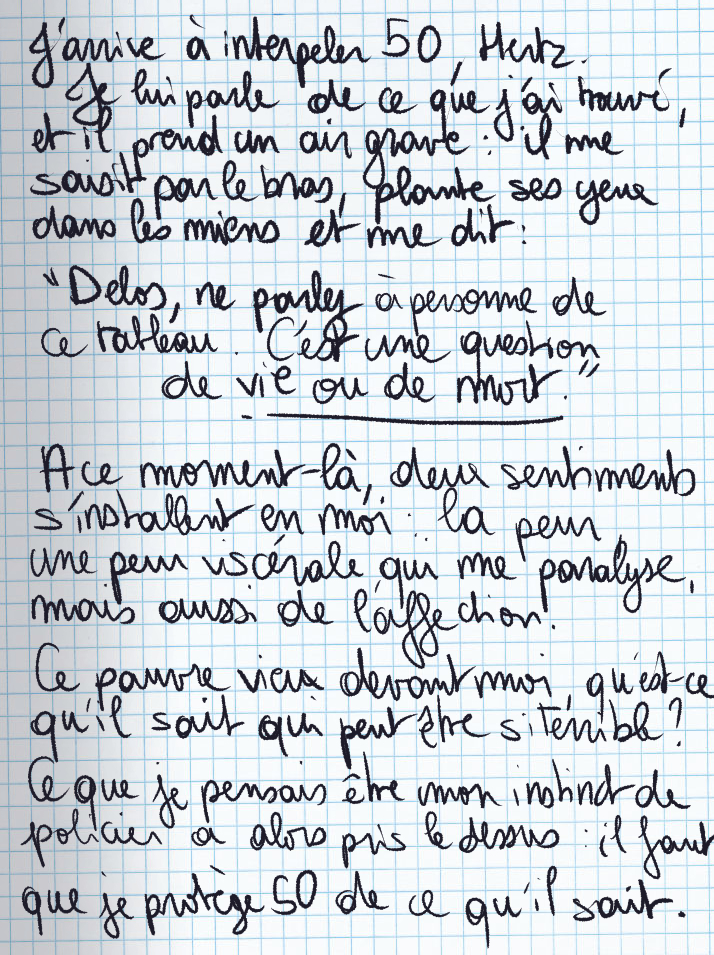 J'arrive à interpeler 50, Hertz.
Je lui parle de ce que j'ai trouvé,
et il prend un air grave : il me
saisit par le bras, plante ses yeux
dans les miens et me dit :
"Delos, ne parlez à personne de
ce tableau. C'est une question
de vie ou de mort."
A ce moment-là, deux sentiments
s'installent en moi : la peur,
une peur viscérale qui me paralyse,
mais aussi de l'affection.
Ce pauvre vieux devant moi, qu'est-ce
qu'il sait qui peut être si terrible ?
Ce que je pensais être mon instinct de
policier a alors pris le dessus : il faut
que je protège 50 de ce qu'il sait.